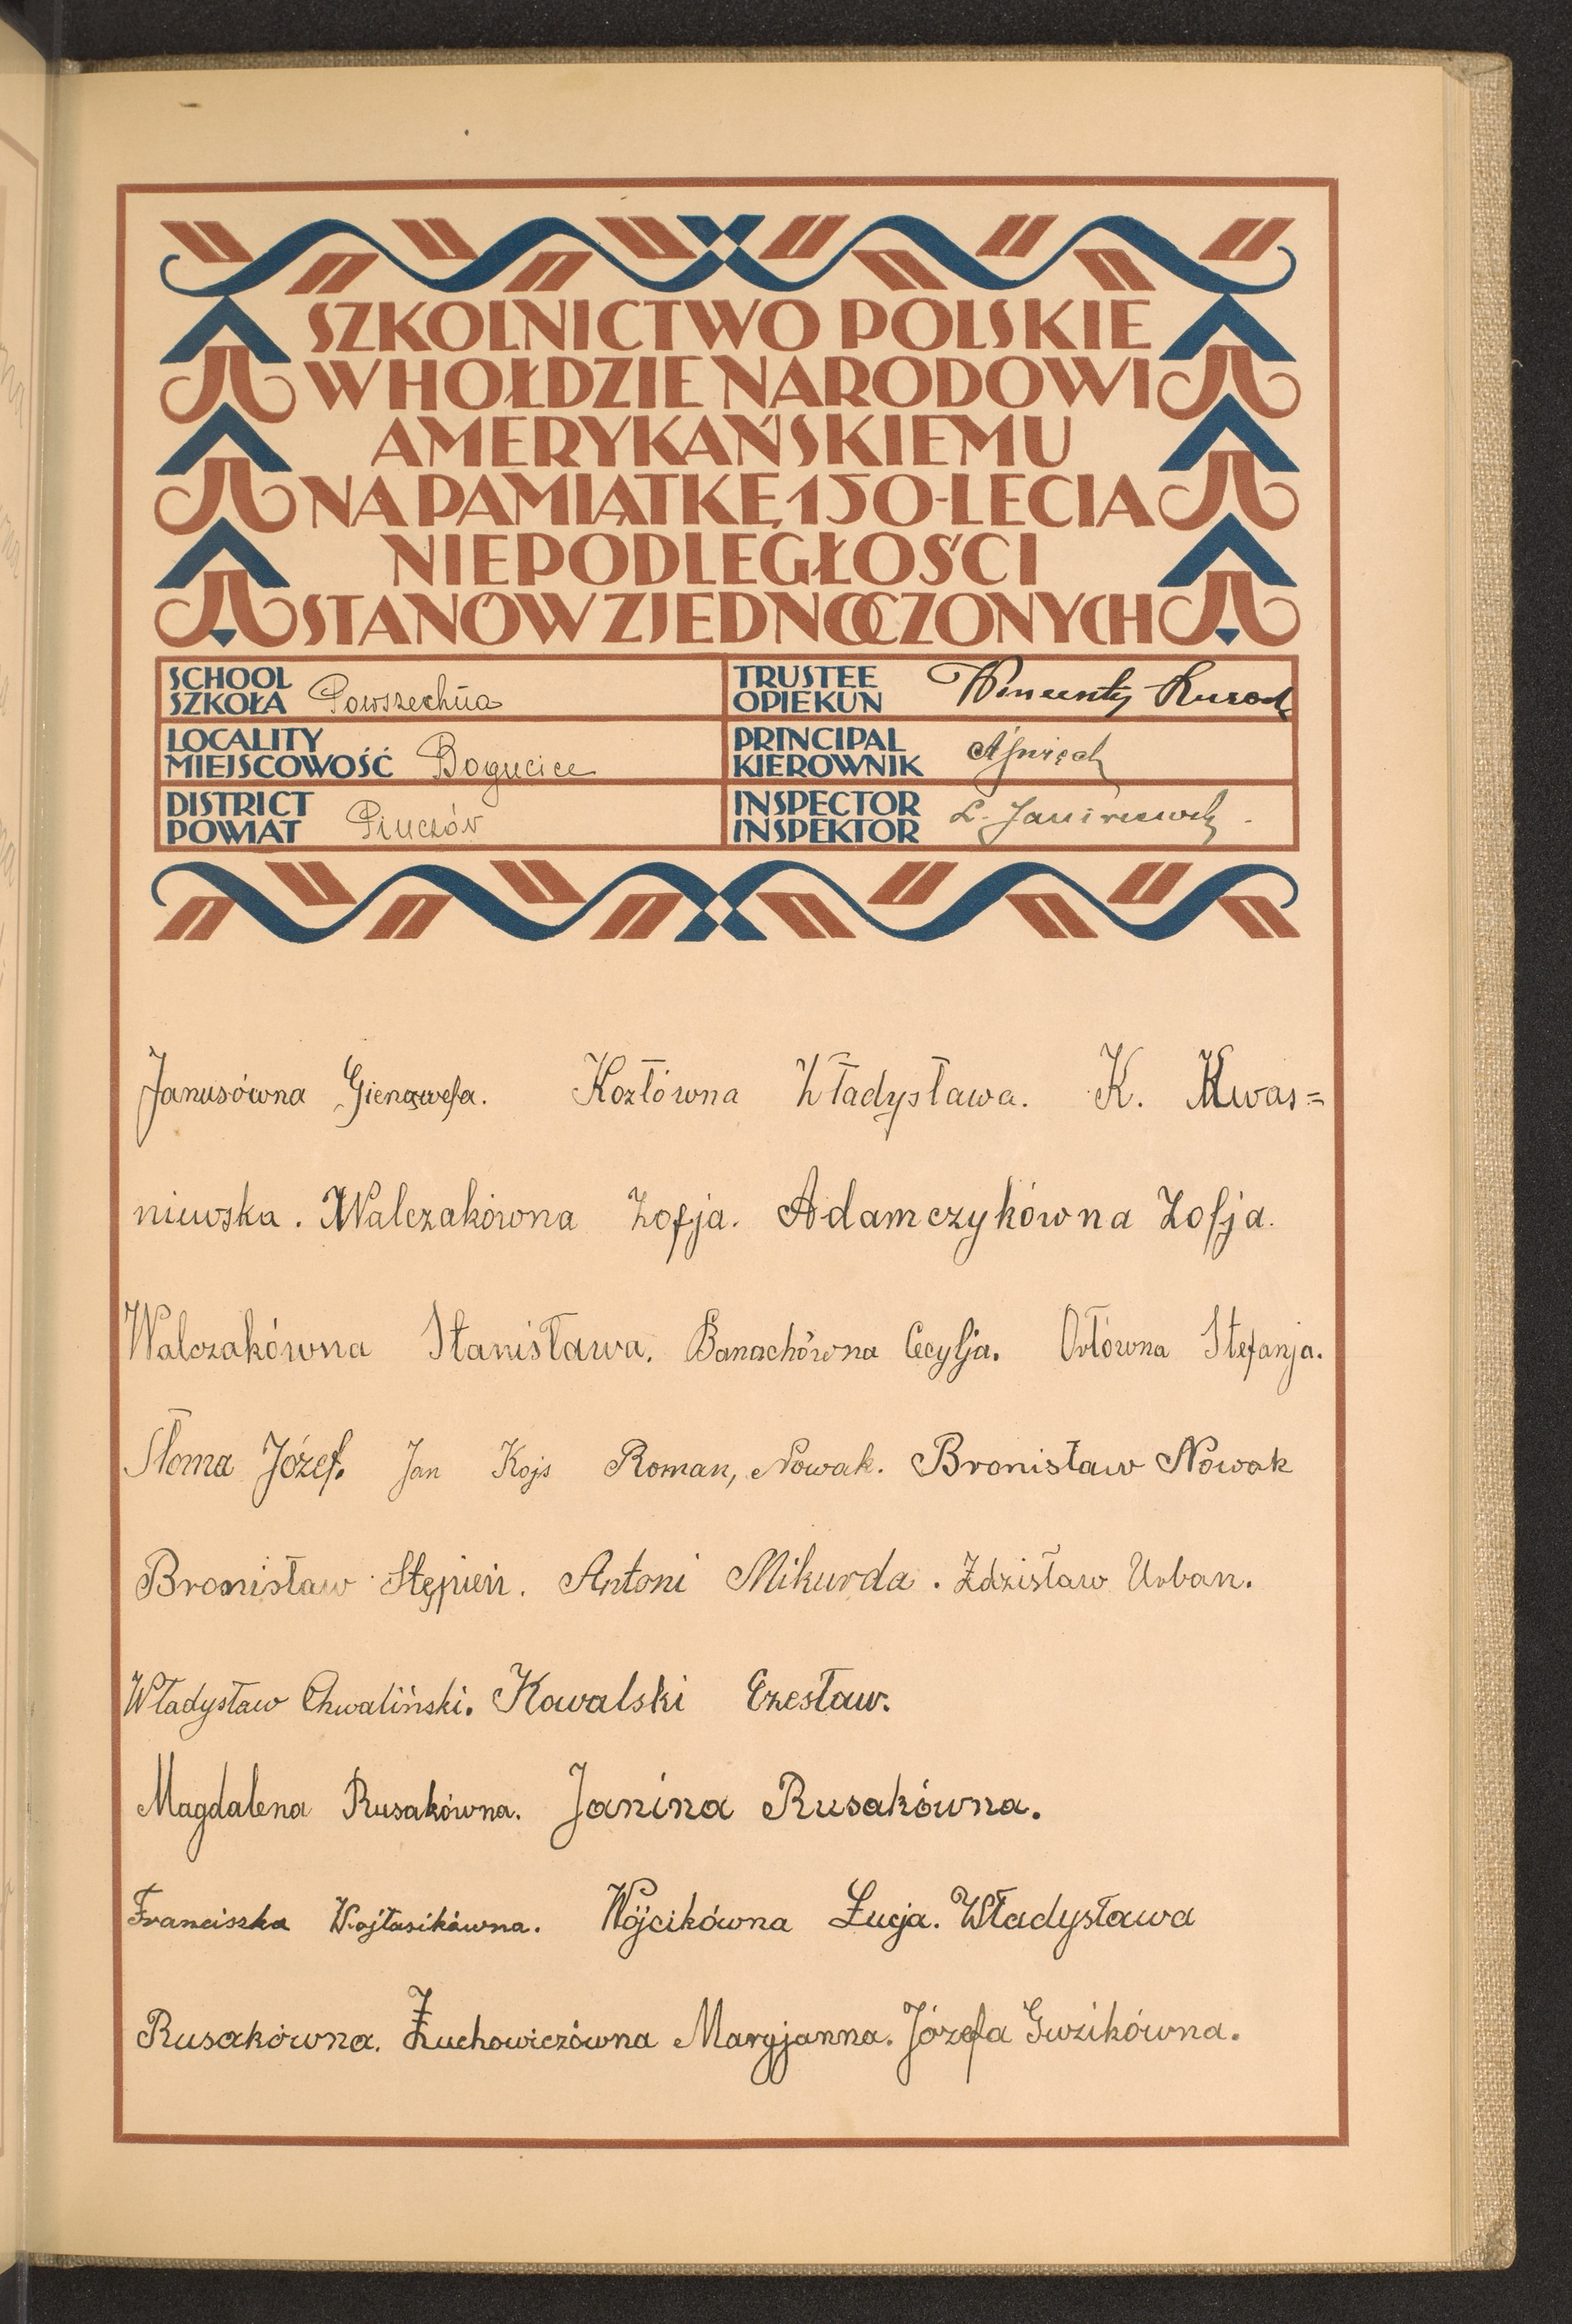 SZKOLNICTWO POLSKIE
W HOŁDZIE NARODOWI
AMERYKAŃSKIEMU
NA PAMIĄTKĘ 150-LECIA
NIEPODLEGŁOŚCI
STANÓW ZJEDNOCZONYCH
SCHOOL
SZKOŁA Powszechna
TRUSTEE
OPIEKUN Wincenty
LOCALITY
MIEJSCOWOŚĆ Bogucice
PRINCIPAL
KIEROWNIK
DISTRICT
POWIAT Pińczów
INSPECTOR
INSPEKTOR
Janusówna Gienowefa. Kozłówna Władysława. K. Kwas=
niewska. Walczakówna Zofja. Adamczykówna Zofja.
Walczakówna Stanisława. Banachówna Cecylja. Orłówna Stefanja.
Słoma Józef. Jan Kojs Roman, Nowak. Bronisław Nowak
Bronisław Stępień. Antoni Mikurda. Zdzisław Urban.
Władysław Chwaliński. Kowalski Czesław.
Magdalena Rusakówna. Janina Rusakówna.
Franciszka Wojtasikówna. Wójcikówna Łucja. Władysława
Rusakówna. Żuchowiczówna Maryjanna. Józefa Gwzikówna.